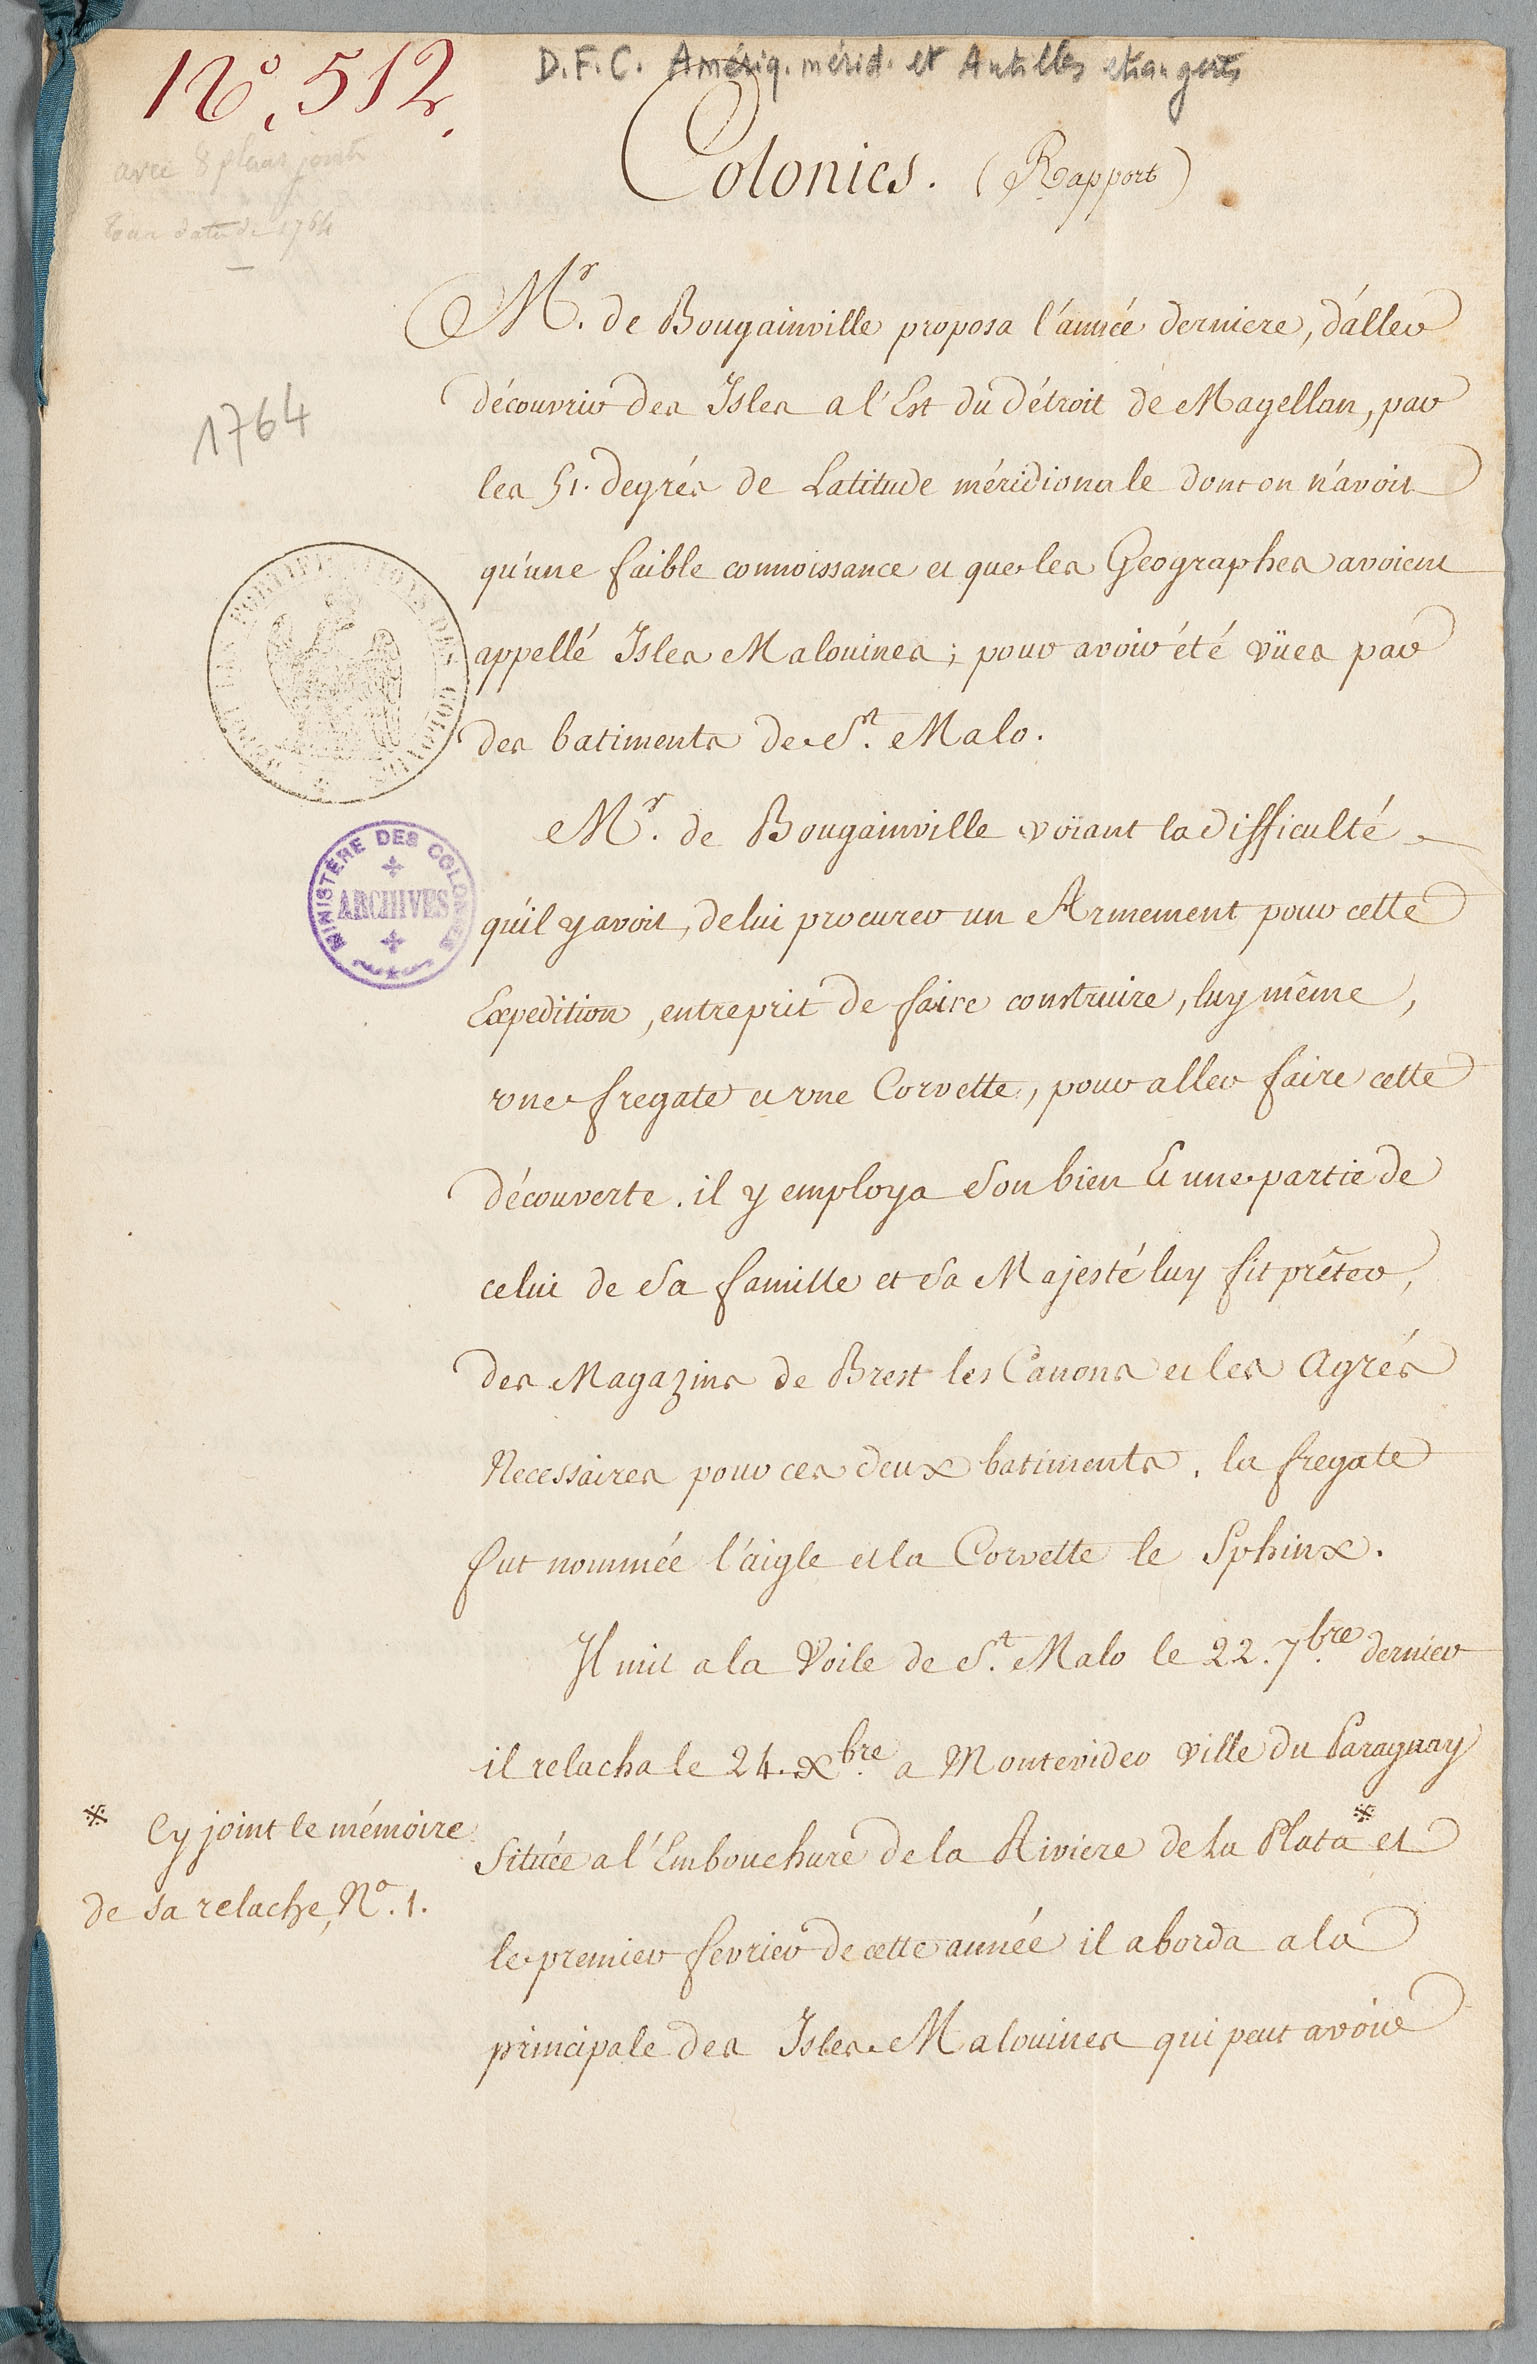 N.º 512.
D.F.C. Amériq. mérid. et Antilles etrangeres
avec 8 plans joints
1764
Colonies. (Rapport)
M.r de Bougainville proposa l'année derniere, d'aller
découvrir des Isles a l'Est du détroit de Magellan, par
les 51. degrés de Latitude méridionale dont on n'avoit
qu'une faible connoissance et que les Geographes avoient
appellé Isles Malouines; pour avoir été vües par
des batiments de S.t Malo.
M.r de Bougainville voïant la difficulté
qu'il y avoit, de lui procurer un Armement pour cette
Expedition, entreprit de faire construire, luy même,
une fregate et une Corvette, pour aller faire cette
découverte. il y employa Son bien & une partie de
celui de Sa famille et Sa Majesté luy fit prêter,
des Magazins de Brest les Canons et les Agrés
Necessaires pour ces deux batiments. la fregate
fut nommée l'aigle et la Corvette le Sphinx.
Il mit a la Voile de S.t Malo le 22. 7.bre dernier
il relacha le 24. X.bre a Montevideo Ville du Paraguay
Située a l'Embouchure de la Riviere de la Plata※ et
le premier fevrier de cette année il aborda a la
principale des Isles Malouines qui peut avoir
※ Cy joint le mémoire
de sa relache, N.º 1.
MINISTÈRE DES COLONIES
ARCHIVES